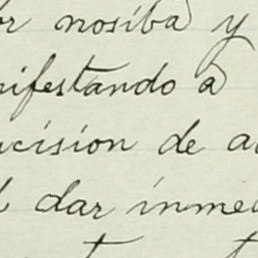 or nosiba y
nifestando a
cision de a
dar inme